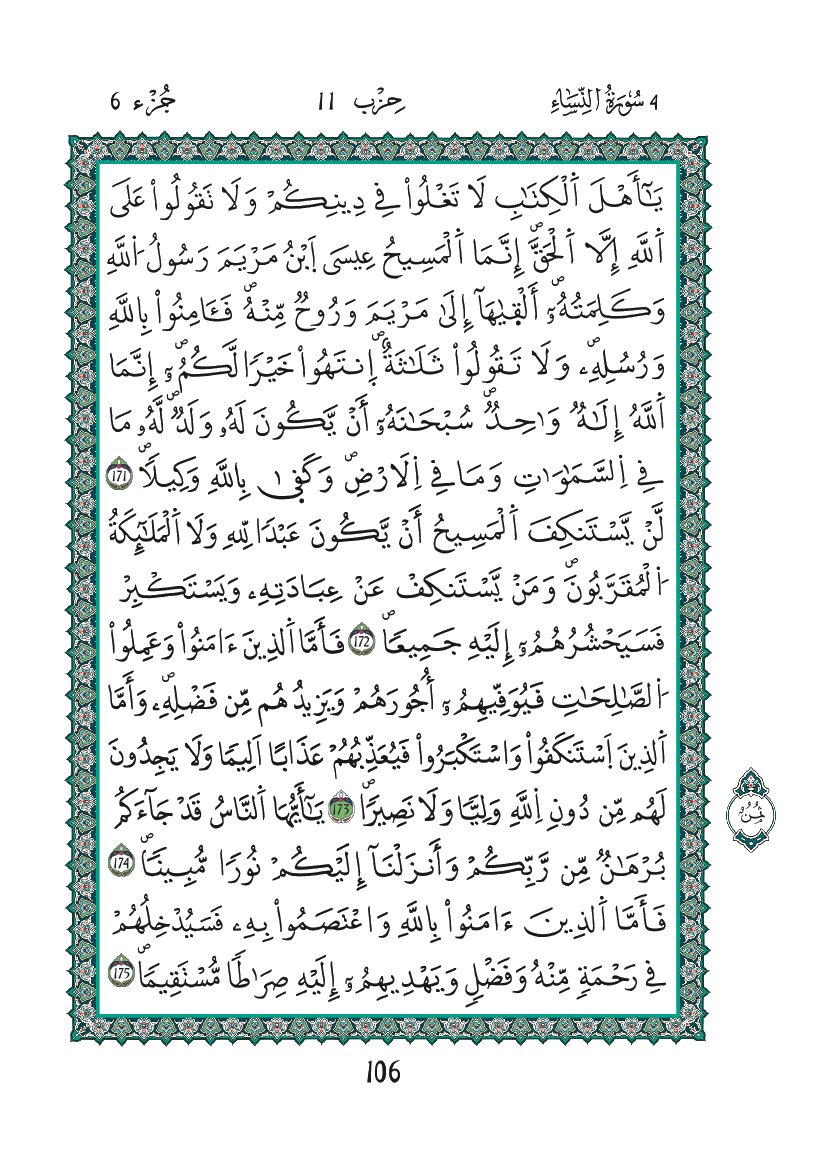 4 سُورَةُ النِّسَاءِ حِزْب 11 جُزْء 6
يَٰٓأَهْلَ اَ۬لْكِتَٰبِ لَا تَغْلُواْ فِے دِينِكُمْ وَلَا تَقُولُواْ عَلَي
اَ۬للَّهِ إِلَّا اَ۬لْحَقَّۖ إِنَّمَا اَ۬لْمَسِيحُ عِيسَي اَ۪بْنُ مَرْيَمَ رَسُولُ اُ۬للَّهِ
وَكَلِمَتُهُۥٓۖ أَلْق۪يٰهَآ إِلَيٰ مَرْيَمَ وَرُوحٌ مِّنْهُۖ فَـَٔامِنُواْ بِاللَّهِ
وَرُسُلِهِۦۖ وَلَا تَقُولُواْ ثَلَٰثَةٌۖ اِ۪نتَهُواْ خَيْراٗ لَّكُمُۥٓۖ إِنَّمَا
اَ۬للَّهُ إِلَٰهٞ وَٰحِدٞۖ سُبْحَٰنَهُۥٓ أَنْ يَّكُونَ لَهُۥ وَلَدٞۖ لَّهُۥ مَا
فِے اِ۬لسَّمَٰوَٰتِ وَمَا فِے اِ۬لَارْضِۖ وَكَف۪يٰ بِاللَّهِ وَكِيلاٗۖ 171
لَّنْ يَّسْتَنكِفَ اَ۬لْمَسِيحُ أَنْ يَّكُونَ عَبْداٗ لِّلهِ وَلَا اَ۬لْمَلَٰٓئِكَةُ
اُ۬لْمُقَرَّبُونَۖ وَمَنْ يَّسْتَنكِفْ عَنْ عِبَادَتِهِۦ وَيَسْتَكْبِرْ
فَسَيَحْشُرُهُمُۥٓ إِلَيْهِ جَمِيعاٗۖ 172 فَأَمَّا اَ۬لذِينَ ءَامَنُواْ وَعَمِلُواْ
اُ۬لصَّٰلِحَٰتِ فَيُوَفِّيهِمُۥٓ أُجُورَهُمْ وَيَزِيدُهُم مِّن فَضْلِهِۦۖ وَأَمَّا
اَ۬لذِينَ اَ۪سْتَنكَفُواْ وَاسْتَكْبَرُواْ فَيُعَذِّبُهُمْ عَذَاباً اَلِيماٗ وَلَا يَجِدُونَ
لَهُم مِّن دُونِ اِ۬للَّهِ وَلِيّاٗ وَلَا نَصِيراٗۖ 173 يَٰٓأَيُّهَا اَ۬لنَّاسُ قَدْ جَآءَكُم
بُرْهَٰنٞ مِّن رَّبِّكُمْ وَأَنزَلْنَآ إِلَيْكُمْ نُوراٗ مُّبِيناٗۖ 174
فَأَمَّا اَ۬لذِينَ ءَامَنُواْ بِاللَّهِ وَاعْتَصَمُواْ بِهِۦ فَسَيُدْخِلُهُمْ
فِے رَحْمَةٖ مِّنْهُ وَفَضْلٖ وَيَهْدِيهِمُۥٓ إِلَيْهِ صِرَٰطاٗ مُّسْتَقِيماٗۖ 175
ثُمُن
106